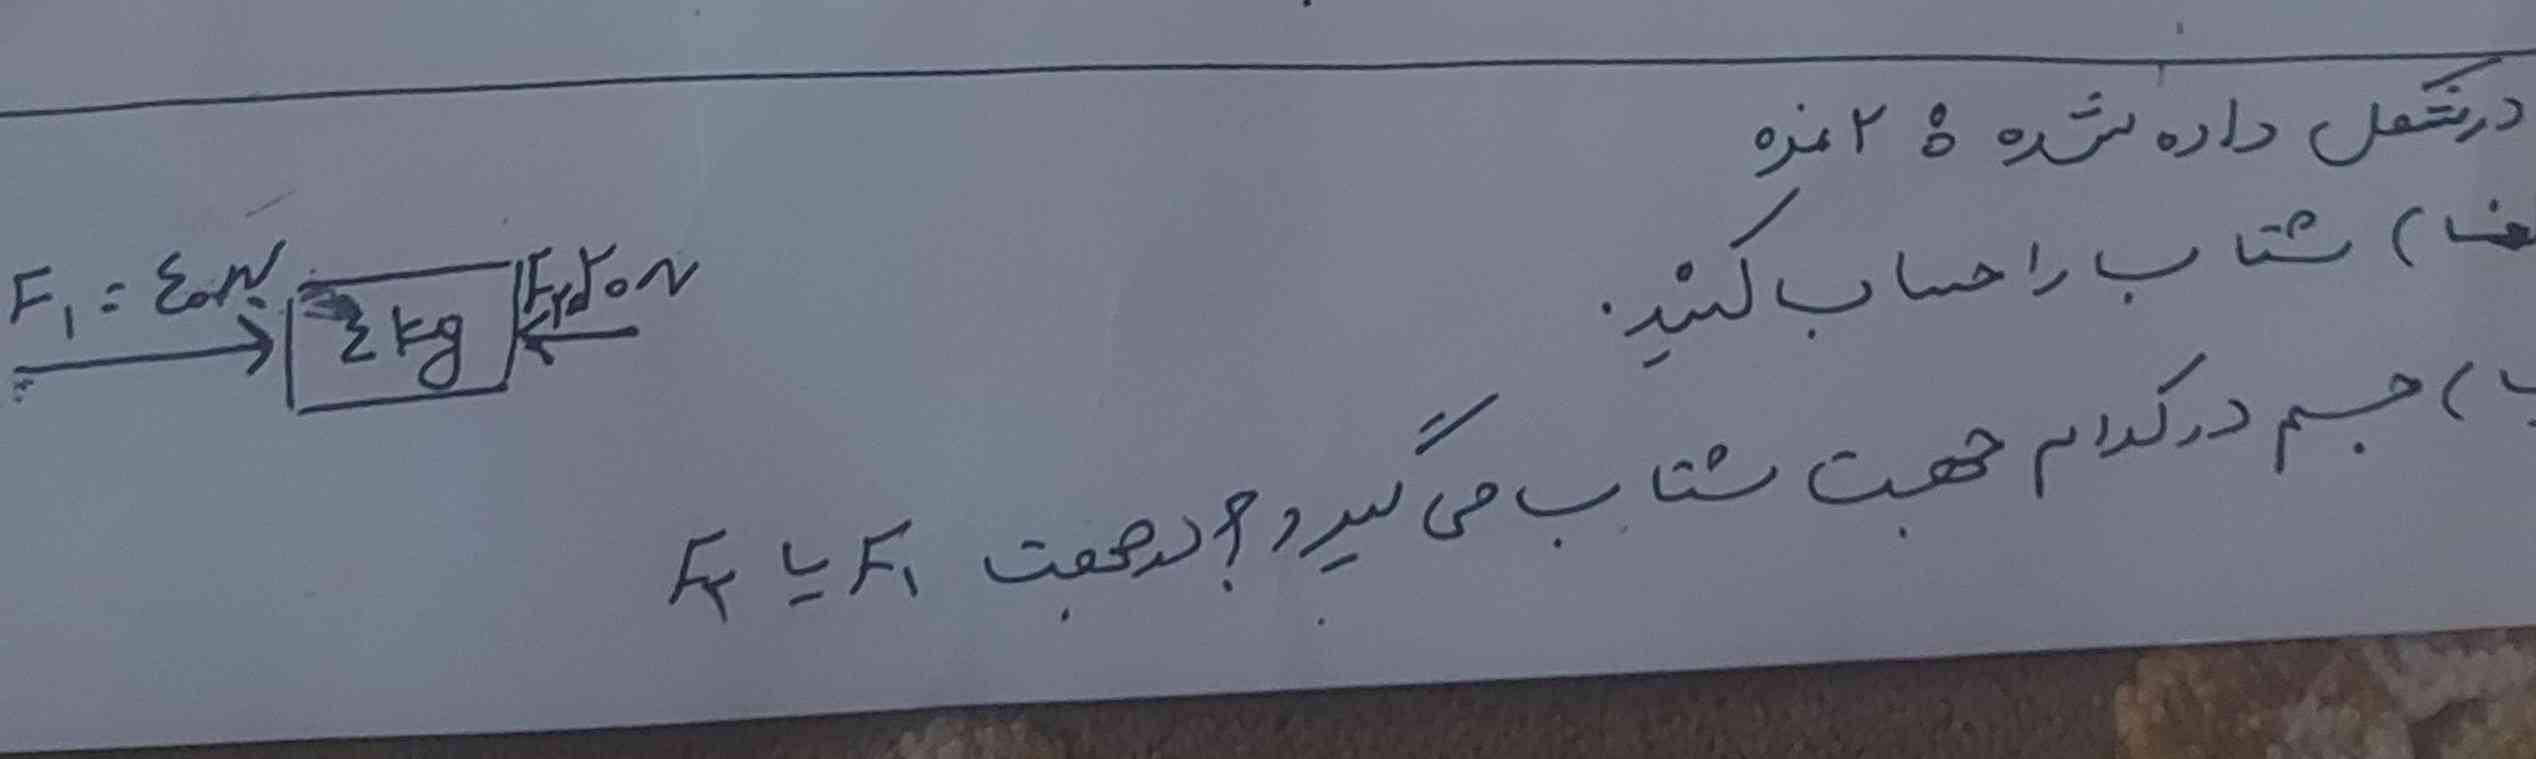 در شکل داده شده : ۲ نمره
الف) شتاب را حساب کنید.
ب) جسم در کدام جهت شتاب می گیرد؟ در جهت F₁ یا F₂
F₁ = ٤٠N
٤kg
F₂=۲۰N